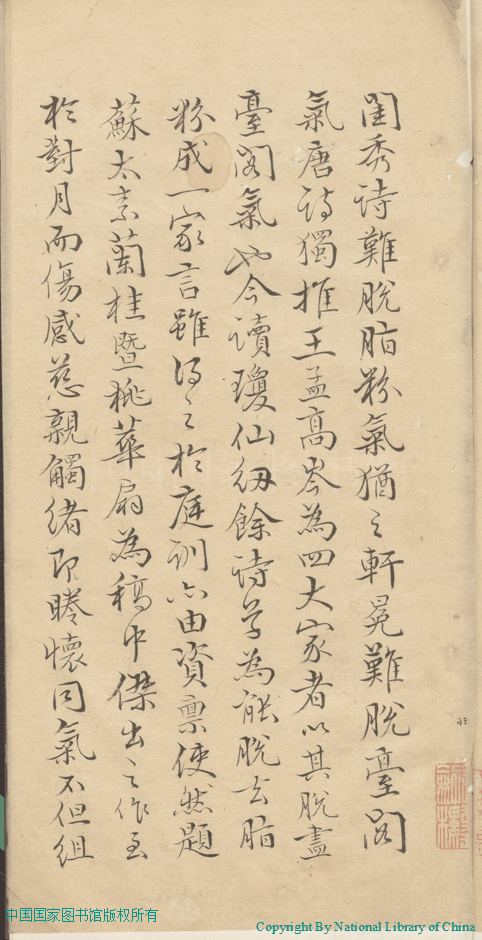 閨秀詩難脫脂粉氣猶之軒冕難脫臺閣
氣唐詩獨推王孟高岑為四大家者以其脫盡
臺閣氣也今讀瓊仙紉餘詩草為能脫去脂
粉成一家言雖得之於庭訓亦由資稟使然題
蘇太素蘭桂暨桃華扇為稿中傑出之作至
於對月而傷感慈親觸緒即眷懷同氣不但組
中国国家图书馆版权所有
Copyright By National Library of China